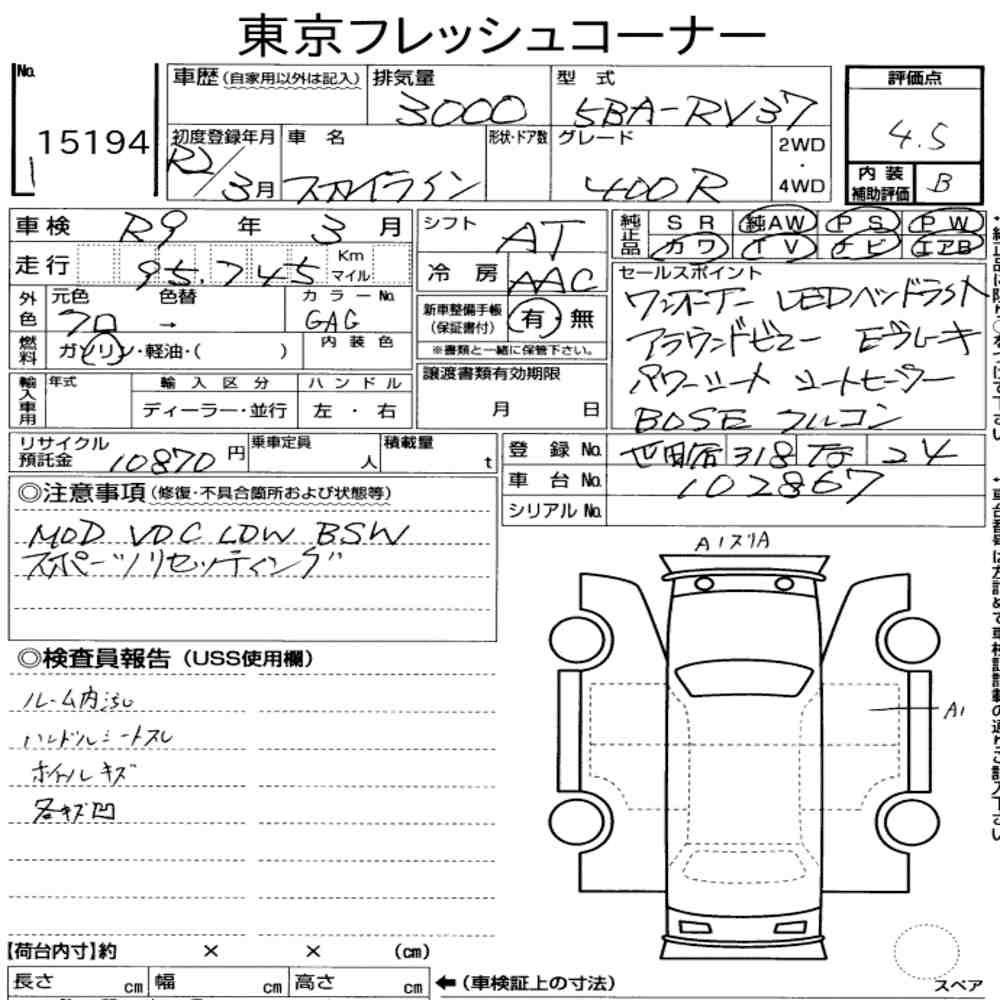 東京フレッシュコーナー
No. 15194
車歴(自家用以外は記入) 排気量 3000 型式 5BA-RV37
評価点 4.5
初度登録年月 R2/3月 車名 スカイライン 形状・ドア数 グレード 400R 2WD・4WD
内装補助評価 B
車検 R9年 3月 シフト AT 純正品 SR 純AW PS PW
カワ TV ナビ エアB
走行 95,745 Km マイル 冷房 AAC
セールスポイント
ワンオーナー LEDヘッドライト
アラウンドビュー Eブレーキ
パワーシート シートヒーター
BOSE フルコン
外色 元色 クロ 色替 → カラーNo. GAG
新車整備手帳(保証書付) 有・無
※書類と一緒に保管下さい。
燃料 ガソリン・軽油・( ) 内装色
輸入車用 年式 輸入区分 ハンドル
ディーラー・並行 左・右
譲渡書類有効期限
月 日
リサイクル預託金 10870円 乗車定員 人 積載量 t
登録No. 世田谷 318 24
車台No. 102867
シリアルNo.
◎注意事項(修復・不具合箇所および状態等)
MOD VDC LOW BSW
スポーツリセッティング
◎検査員報告(USS使用欄)
ルーム内汚れ
ハンドルシートスレ
ホイールキズ
各キズ凹
A1ズリA
A1
【荷台内寸】約 × × (cm)
長さ cm 幅 cm 高さ cm
←(車検証上の寸法)
スペア